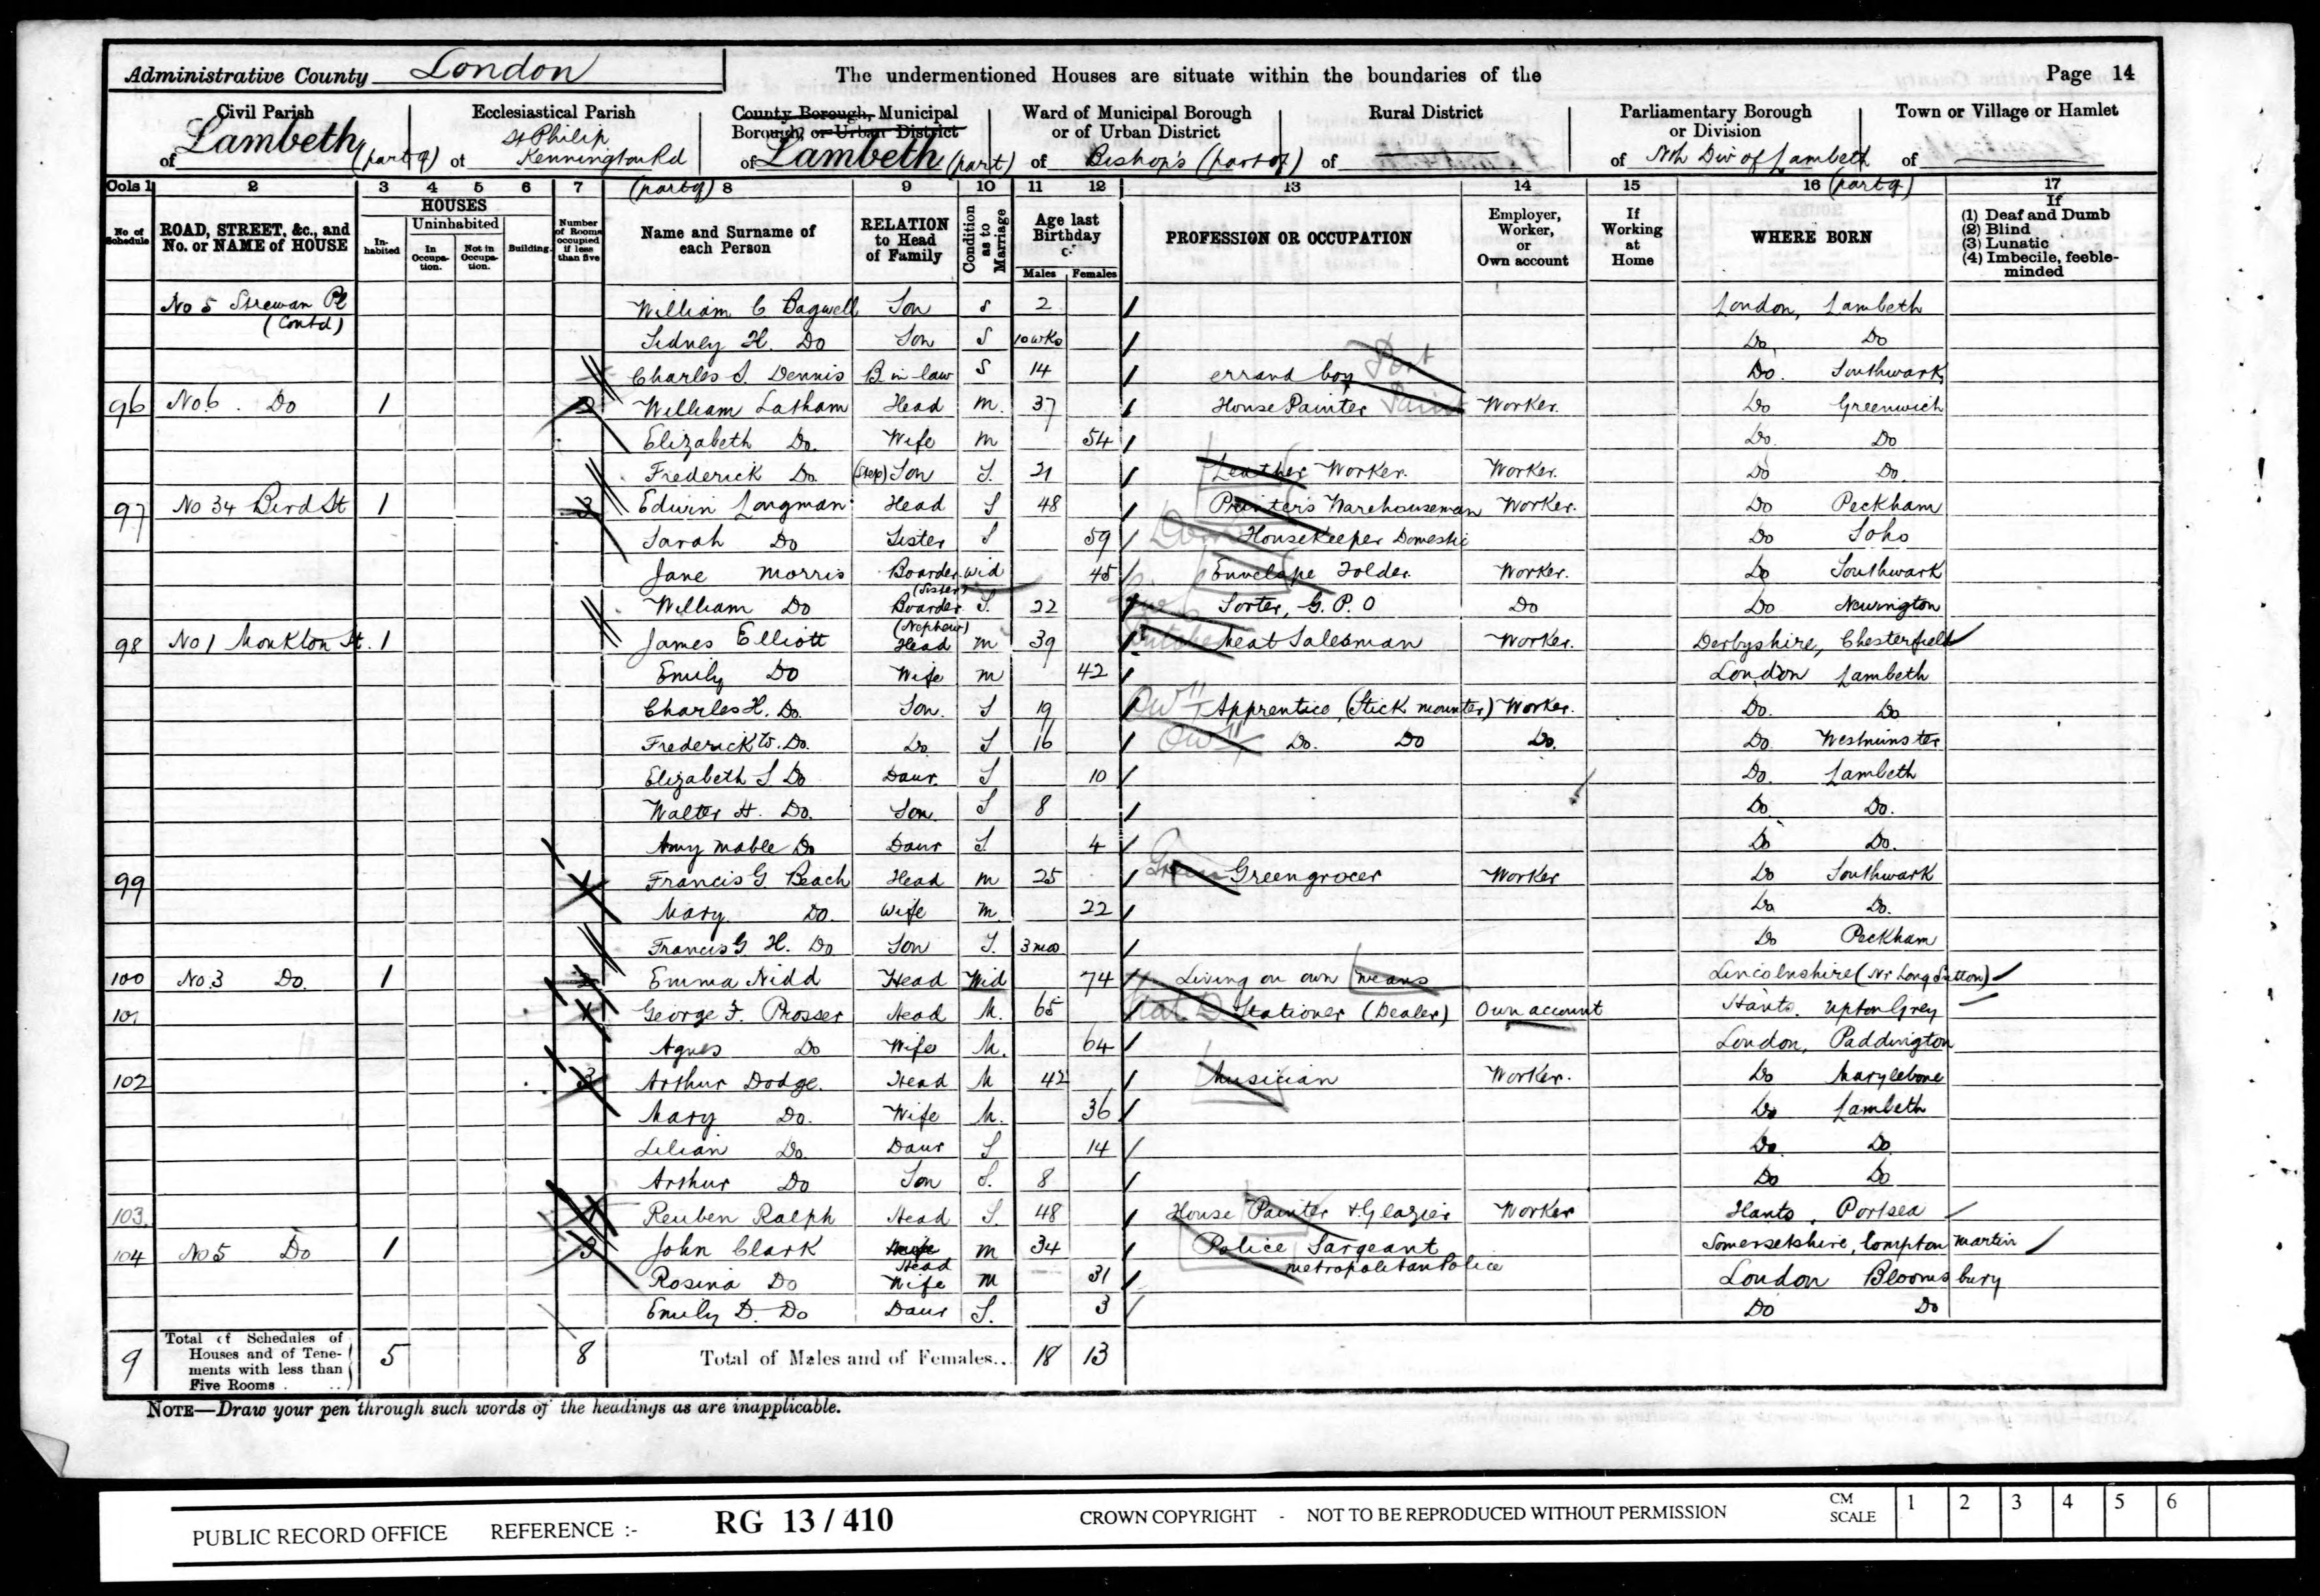 Administrative County London The undermentioned Houses are situate within the boundaries of the Page 14
Civil Parish Ecclesiastical Parish County Borough, Municipal Borough, or Urban District Ward of Municipal Borough or of Urban District Rural District Parliamentary Borough or Division Town or Village or Hamlet
of Lambeth (part of) of St Philip Kennington Rd (part of) of Lambeth (part) of Bishop's (part of) of of Nth Div of Lambeth (part of) of
Cols 1 2 3 4 5 6 7 8 9 10 11 12 13 14 15 16 17
No of Schedule ROAD, STREET, &c., and No. or NAME of HOUSE HOUSES Inhabited Uninhabited In Occupation. Not in Occupation. Building. Number of Rooms occupied if less than five Name and Surname of each Person RELATION to Head of Family Condition as to Marriage Age last Birthday Males Females PROFESSION OR OCCUPATION Employer, Worker, or Own account If Working at Home WHERE BORN If (1) Deaf and Dumb (2) Blind (3) Lunatic (4) Imbecile, feeble-minded
No 5 Strewan Pl (Contd) William C Bagwell Son S 2 London, Lambeth
Sidney H. Do Son S 10 wks Do Do
Charles S. Dennis B in law S 14 errand boy Do. Southwark
96 No. 6. Do 1 2 William Latham Head M. 37 House Painter Worker. Do Greenwich
Elizabeth Do. Wife M 54 Do. Do
Frederick Do. (Step) Son S. 21 Leather Worker. Worker. Do Do.
97 No 34 Bird St 1 3 Edwin Longman Head S 48 Printer's Warehouseman Worker. Do Peckham
Sarah Do Sister S 59 Housekeeper Domestic Do Soho
Jane Morris Boarder (Sister) Wid 45 Envelope Folder. Worker. Do Southwark
William Do Boarder (Nephew) S. 22 Sorter, G.P.O Do Do Newington
98 No 1 Monkton St. 1 James Elliott Head M 39 Meat Salesman Worker. Derbyshire, Chesterfield
Emily Do Wife M 42 London Lambeth
Charles H. Do. Son. S 19 Apprentice, (Stick mounter) Worker. Do. Do
Frederick W. Do. Do S 16 Do. Do Do. Do Westminster
Elizabeth S. Do Daur. S 10 Do. Lambeth
Walter H. Do. Son. S 8 Do Do.
Amy Mable Do Daur S. 4 Do Do.
99 1 Francis G. Beach Head M 25 Greengrocer Worker Do Southwark
Mary. Do. Wife M. 22 Do Do.
Francis G. H. Do Son S. 3 mos Do Peckham
100 No. 3 Do. 1 2 Emma Nidd Head Wid 74 Living on own means Lincolnshire (Nr Long Sutton)
101 1 George F. Prosser Head M. 65 Stationer (Dealer) Own account Hants. Upton Grey
Agnes Do Wife M. 64 London, Paddington
102 3 Arthur Dodge. Head M 42 Musician Worker. Do Marylebone
Mary Do. Wife M. 36 Do Lambeth
Lilian Do Daur S 14 Do. Do.
Arthur Do Son S. 8 Do Do
103. 1 Reuben Ralph Head S. 48 House Painter & Glazier Worker Hants, Portsea
104 No 5 Do 1 3 John Clark Wife Head M 34 Police Sargeant Metropolitan Police Somersetshire, Compton Martin
Rosina Do Wife M 31 London Bloomsbury
Emily D. Do Daur S. 3 Do Do
9 Total of Schedules of Houses and of Tenements with less than Five Rooms 5 8 Total of Males and of Females... 18 13
NOTE—Draw your pen through such words of the headings as are inapplicable.
PUBLIC RECORD OFFICE REFERENCE :- RG 13 / 410 CROWN COPYRIGHT - NOT TO BE REPRODUCED WITHOUT PERMISSION CM SCALE 1 2 3 4 5 6